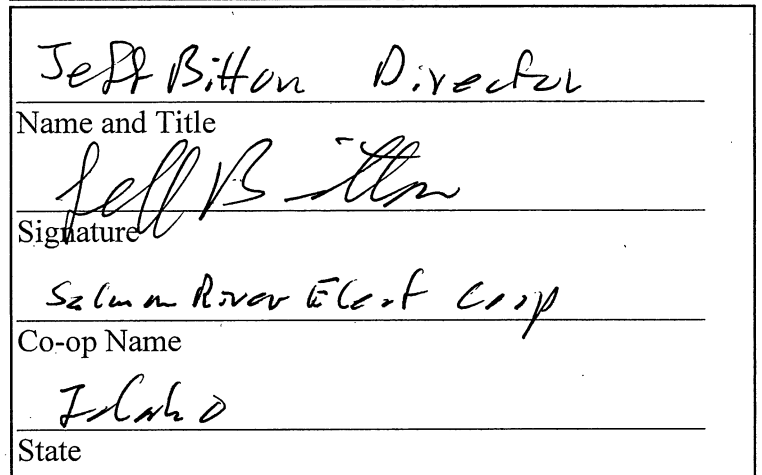 Jeff Bitton Director
Name and Title
Jeff Bitton
Signature
Salmon River Elect Coop
Co-op Name
Idaho
State